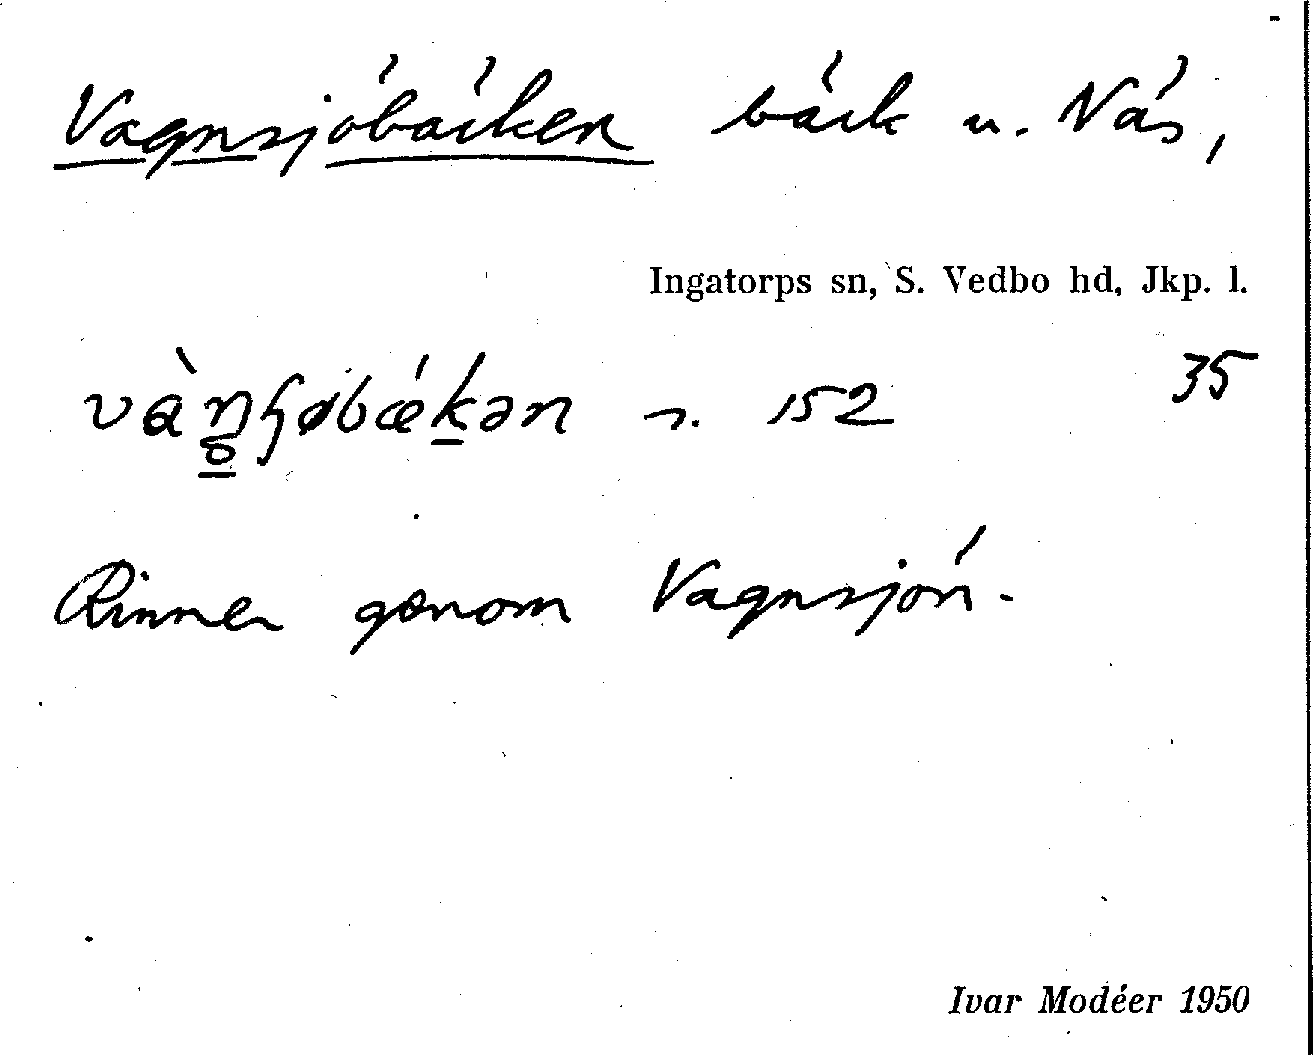 Vagnsjöbäcken bäck u. Näs,
Ingatorps sn, S. Vedbo hd, Jkp. l.
35
152
Rinner genom Vagnsjön.
Ivar Modéer 1950